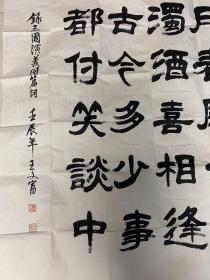 月春風
濁酒喜相逢
古今多少事
都付笑談中
錄三國演義開篇詞 壬辰年 王文富